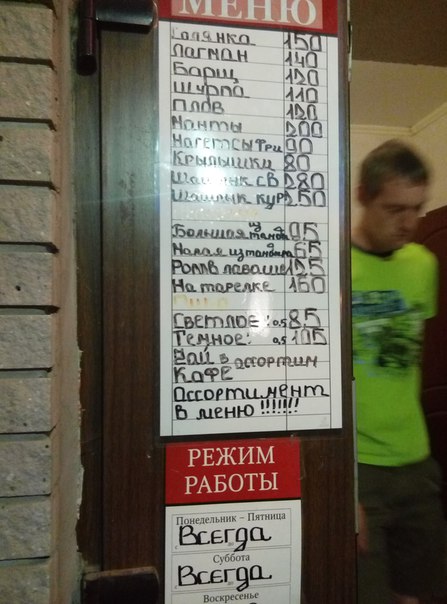 МЕНЮ
Солянка 150
Лагман 140
Барщ 120
Шурпа 110
Плов 120
Манты 200
Нагетсы фри 90
Крылышки 80
Шашлык св 280
Шашлык кур 250
Большая из тандыра 95
Малая из тандыра 65
Ролл в лаваше 125
На тарелке 160
Пиво
Светлое: 0,5 85
Темное: 0,5 105
Чай в ассортим
Кофе
Ассортимент
в меню !!!!!!!
РЕЖИМ
РАБОТЫ
Понедельник – Пятница
с Всегда
Суббота
с Всегда
Воскресенье